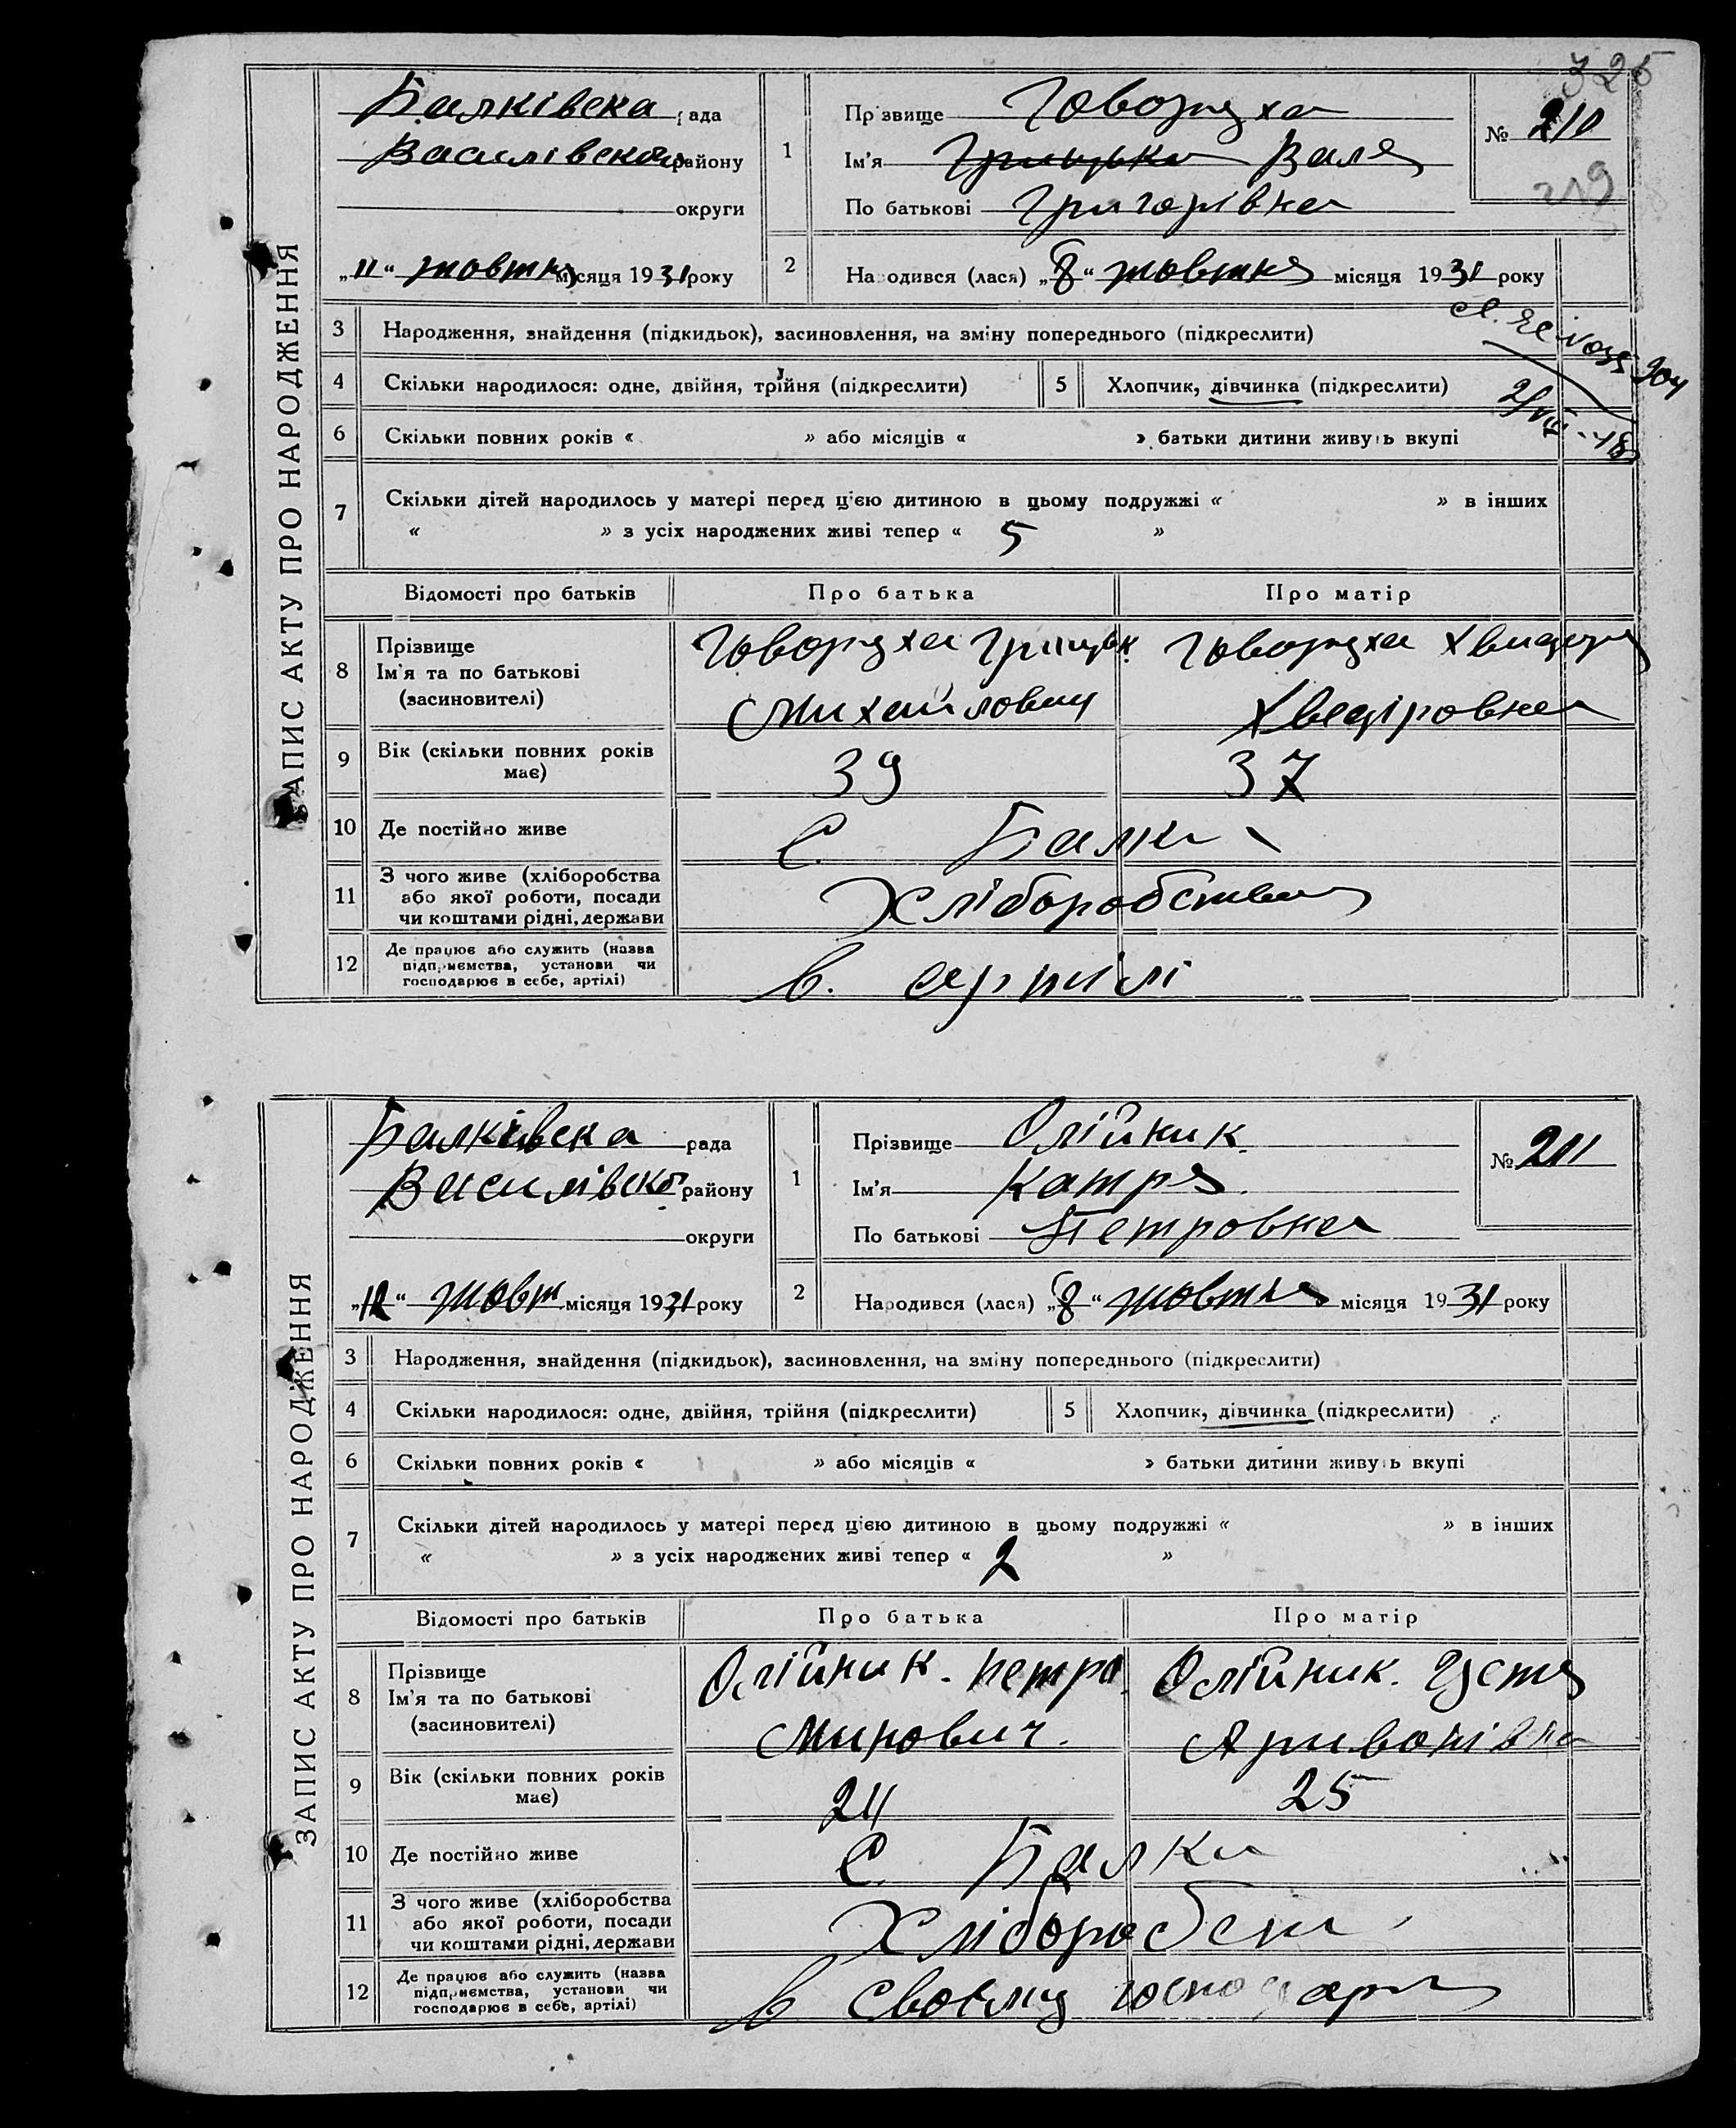 325
ЗАПИС АКТУ ПРО НАРОДЖЕННЯ
Балківська рада
Василівского району
округи
„11“ жовтня місяця 1931 року
1
Прізвище Говоруха
Ім'я Грицько Валя
По батькові Григорівна
№ 210
219
2
Народився (лася) „8“ жовтня місяця 1931 року
3 Народження, знайдення (підкидьок), засиновлення, на зміну попереднього (підкреслити)
4 Скільки народилося: одне, двійня, трійня (підкреслити)
5 Хлопчик, дівчинка (підкреслити)
6 Скільки повних років « » або місяців « » батьки дитини живуть вкупі
7 Скільки дітей народилось у матері перед цією дитиною в цьому подружжі « » в інших
« » з усіх народжених живі тепер « 5 »
Відомості про батьків Про батька Про матір
8 Прізвище
Ім'я та по батькові
(засиновителі)
Говоруха Грицьк.
Михайлович
Говоруха
Хведіровна
9 Вік (скільки повних років має) 39 37
10 Де постійно живе С. Балки
11 З чого живе (хліборобства
або якої роботи, посади
чи коштами рідні, держави
Хліборобства
12 Де працює або служить (назва
підприємства, установи чи
господарює в себе, артілі)
в. артілі
ЗАПИС АКТУ ПРО НАРОДЖЕННЯ
Балківська рада
Василівско района
округи
„12“ жовт місяця 1931 року
1
Прізвище Олійник.
Ім'я Катря.
По батькові Петровна
№ 211
2
Народився (лася) „8“ жовтня місяця 1931 року
3 Народження, знайдення (підкидьок), засиновлення, на зміну попереднього (підкреслити)
4 Скільки народилося: одне, двійня, трійня (підкреслити)
5 Хлопчик, дівчинка (підкреслити)
6 Скільки повних років « » або місяців « » батьки дитини живуть вкупі
7 Скільки дітей народилось у матері перед цією дитиною в цьому подружжі « » в інших
« » з усіх народжених живі тепер « 2 »
Відомості про батьків Про батька Про матір
8 Прізвище
Ім'я та по батькові
(засиновителі)
Олійник. Петро.
Миронович.
Олійник. Устя
9 Вік (скільки повних років має) 24 25
10 Де постійно живе С. Балки
11 З чого живе (хліборобства
або якої роботи, посади
чи коштами рідні, держави
Хліборобств
12 Де працює або служить (назва
підприємства, установи чи
господарює в себе, артілі)
в своєму господарст